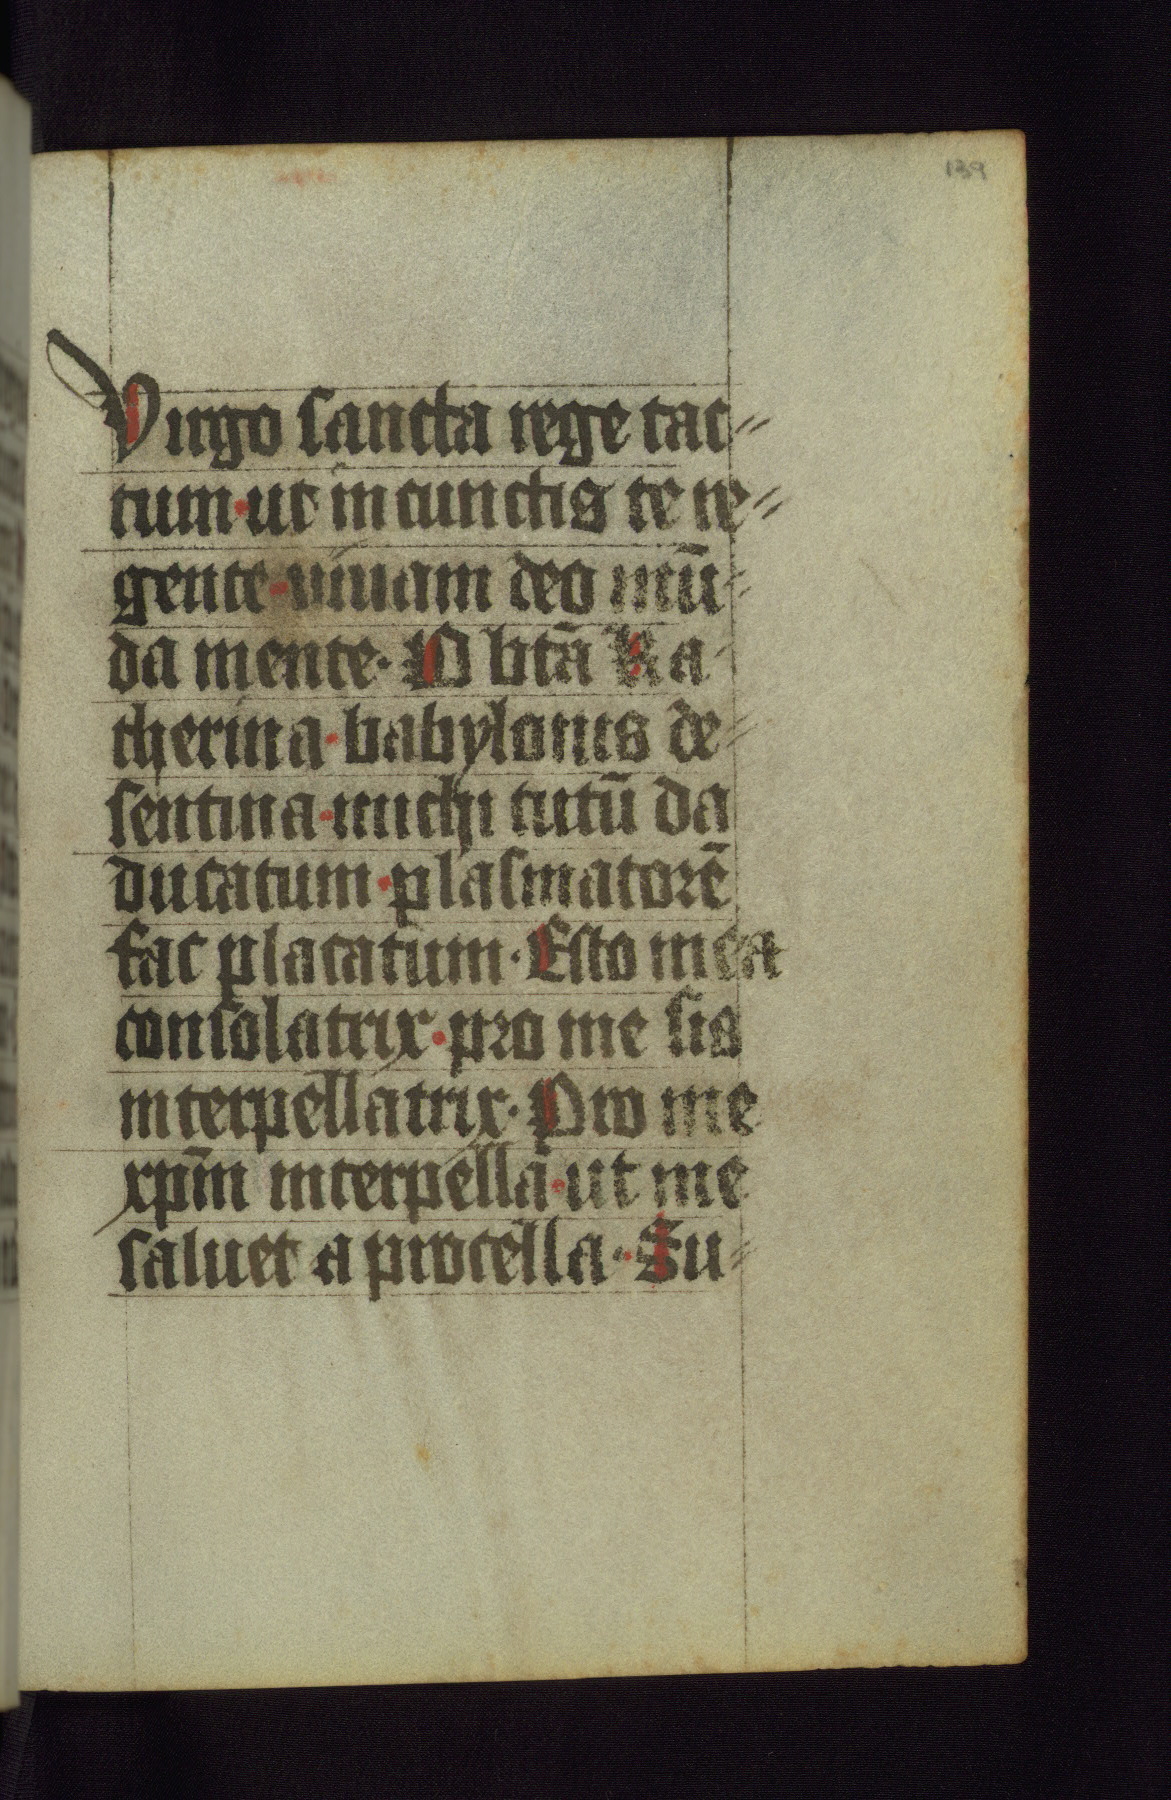 139
Virgo sancta rege tac⸗
tum · ut in cunctis te re⸗
gente · viuam deo mū⸗
da mente · O btā Ka⸗
therina · babylonis de⸗
sentina · michi tutū da
ducatum · plasmatorē
fac placatum · Esto mea
consolatrix · pro me sis
interpellatrix · Pro me
xp̄m interpella · ut me
saluet a procella · Su⸗